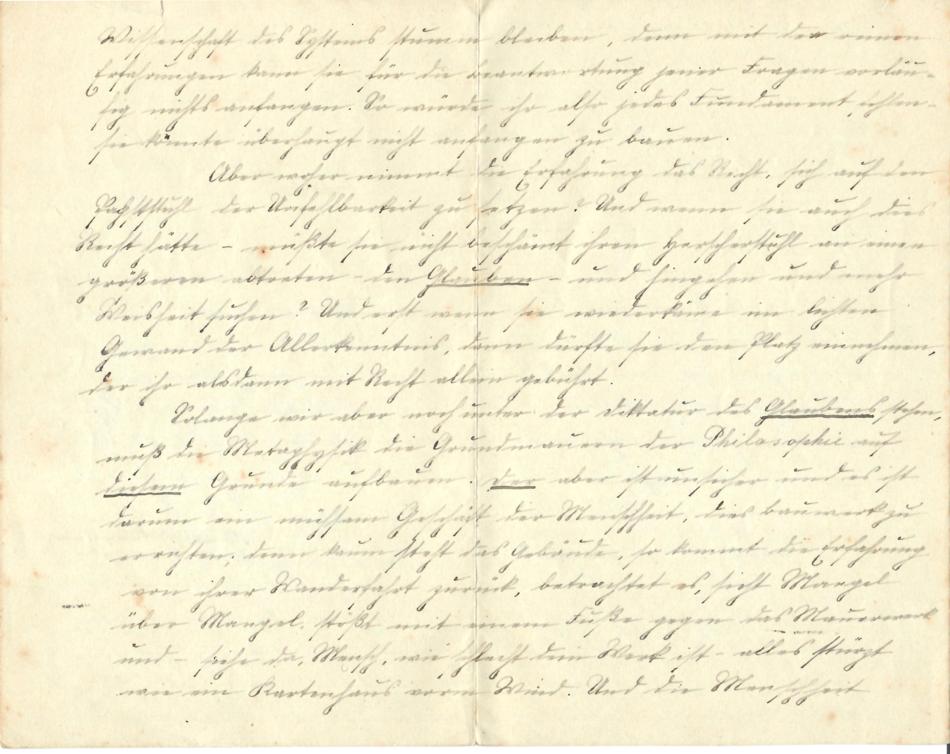 Wissenschaft des Systems stumm bleiben, denn mit den reinen
Erfahrungen kann sie für die Beantwortung jener Fragen vorläu-
fig nichts anfangen. So würde ihr also jedes Fundament fehlen –
sie könnte überhaupt nicht anfangen zu bauen.
Aber woher nimmt die Erfahrung das Recht, sich auf den
Papststuhl der Unfehlbarkeit zu setzen? Und wenn sie auch dies
Recht hätte – müßte sie nicht beschämt ihren Herscherstuhl an einen
größeren abtreten – den Glauben – und hingehen und mehr
Weisheit suchen? Und erst wenn sie wiederkäme im lichten
Gewand der Allerkenntnis, dann dürfte sie den Platz einnehmen,
der ihr alsdann mit Recht allein gebührt.
Solange wir aber noch unter der Diktatur des Glaubens stehen,
muß die Metaphysik die Grundmauern der Philosophie auf
diesem Grunde aufbauen. Der aber ist unsicher und es ist
darum ein mühsam Geschäft der Menschheit, dies Bauwerk zu
errichten; denn kaum steht das Gebäude, so kommt die Erfahrung
von ihrer Wanderfahrt zurück, betrachtet es, sieht Mangel
über Mangel, stößt mit einem Fuße gegen das Mauerwerk
und – siehe da, Mensch, wie schlecht dein Werk ist – alles stürzt
wie ein Kartenhaus vorm Wind. Und die Menschheit